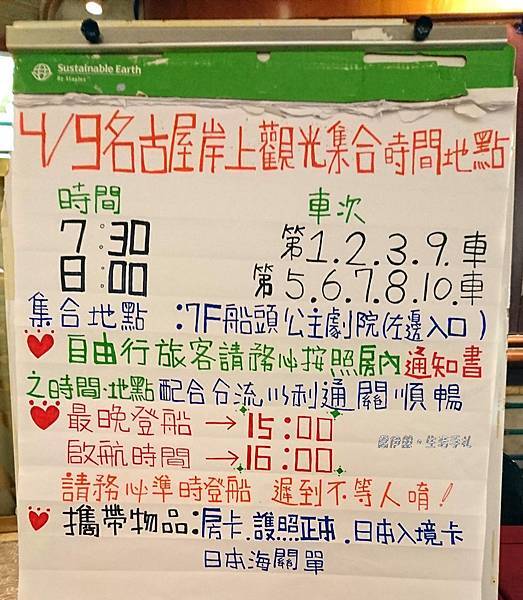 Sustainable Earth
By Staples
4/9名古屋岸上觀光集合時間地點
時間 車次
7:30 第1.2.3.9.車
8:00 第5.6.7.8.10.車
集合地點:7F船頭公主劇院(左邊入口)
自由行旅客請務必按照房內通知書
之時間·地點配合分流以利通關順暢
最晚登船→15:00
啟航時間→16:00
請務必準時登船 遲到不等人唷!
攜帶物品:房卡.護照正本.日本入境卡
日本海關單